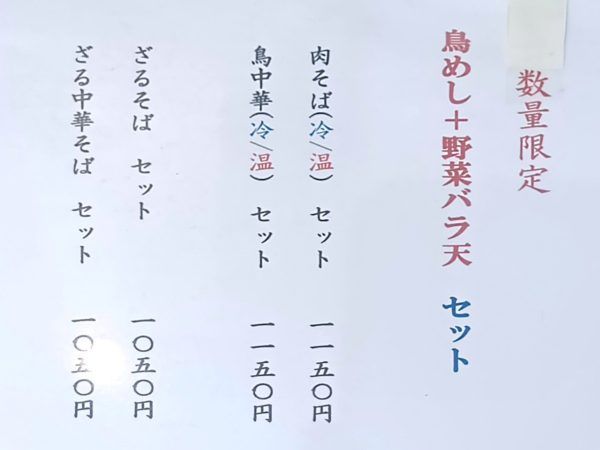 数量限定
鳥めし＋野菜バラ天　セット
肉そば(冷/温)　セット　一一五〇円
鳥中華(冷/温)　セット　一一五〇円
ざるそば　セット　一〇五〇円
ざる中華そば　セット　一〇五〇円